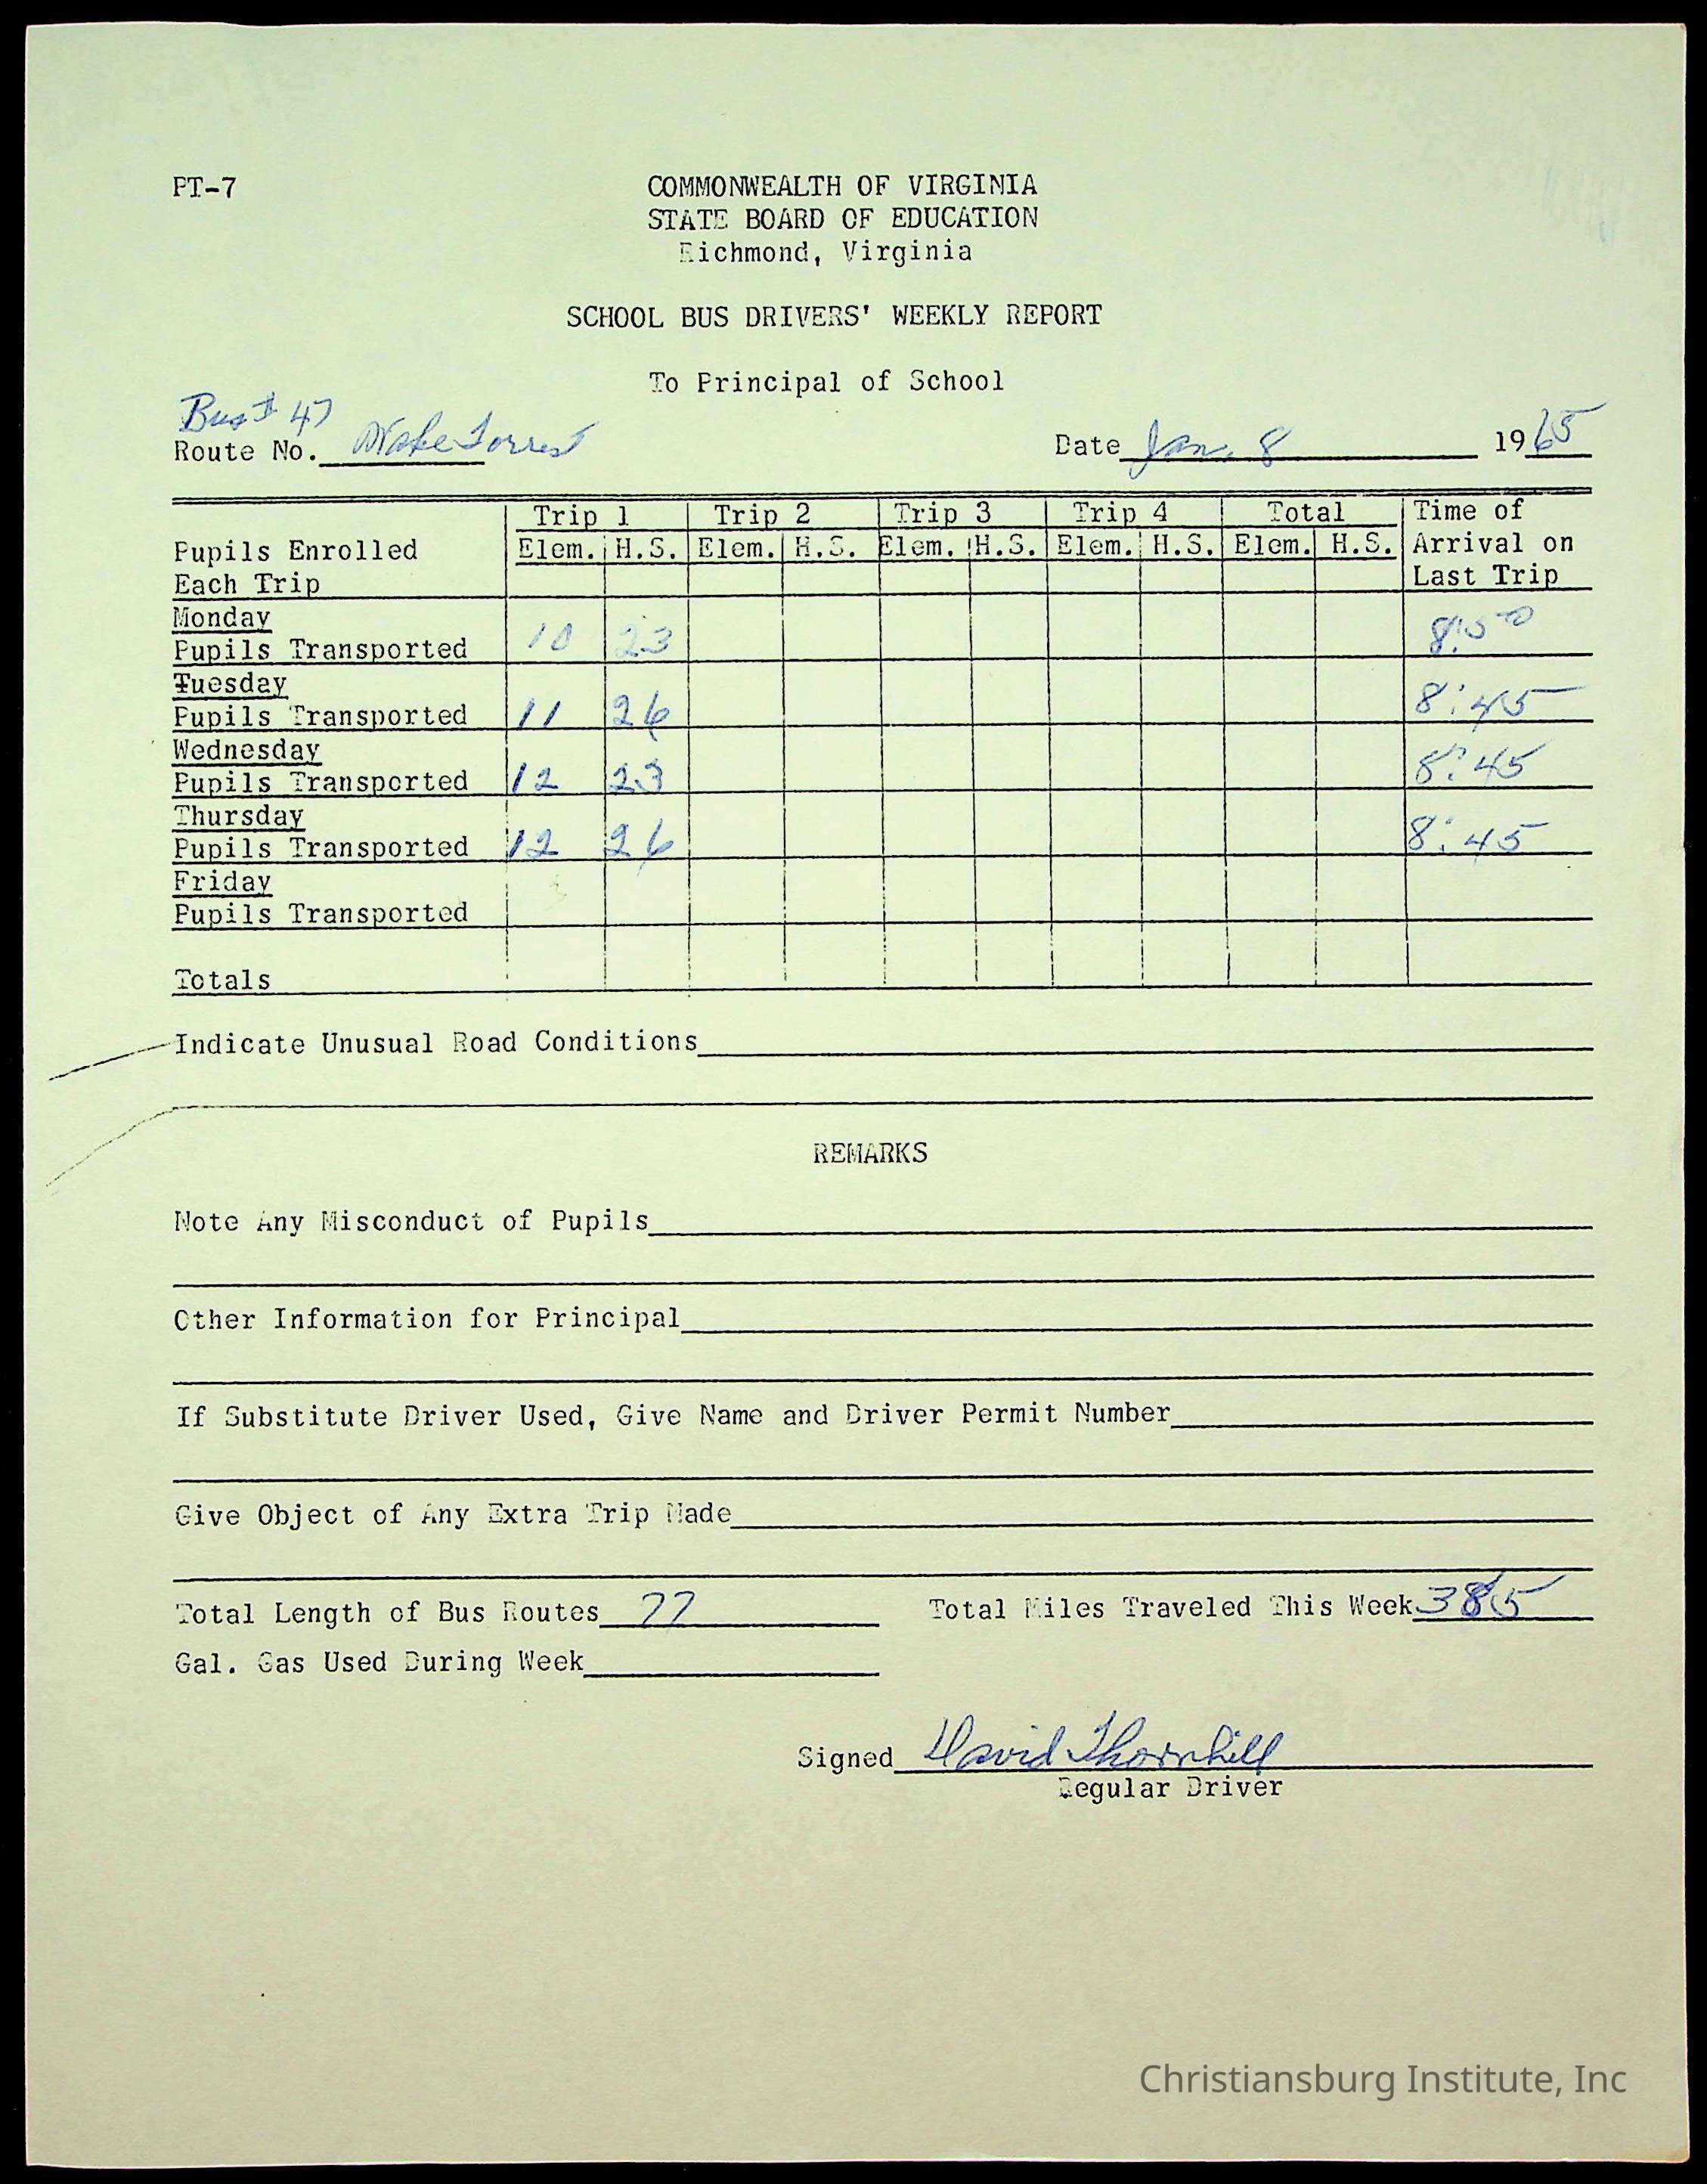 PT-7
COMMONWEALTH OF VIRGINIA
STATE BOARD OF EDUCATION
Richmond, Virginia
SCHOOL BUS DRIVERS' WEEKLY REPORT
To Principal of School
Bus # 47
Route No. Wake Forrest
Date Jan. 8 1965
Trip 1 Trip 2 Trip 3 Trip 4 Total Time of
Pupils Enrolled Elem. H.S. Elem. H.S. Elem. H.S. Elem. H.S. Elem. H.S. Arrival on
Each Trip Last Trip
Monday
Pupils Transported 10 23 8:50
Tuesday
Pupils Transported 11 26 8:45
Wednesday
Pupils Transported 12 23 8:45
Thursday
Pupils Transported 12 26 8:45
Friday
Pupils Transported
Totals
Indicate Unusual Road Conditions
REMARKS
Note Any Misconduct of Pupils
Other Information for Principal
If Substitute Driver Used, Give Name and Driver Permit Number
Give Object of Any Extra Trip Made
Total Length of Bus Routes 77 Total Miles Traveled This Week 385
Gal. Gas Used During Week
Signed David Thornhill
Regular Driver
Christiansburg Institute, Inc